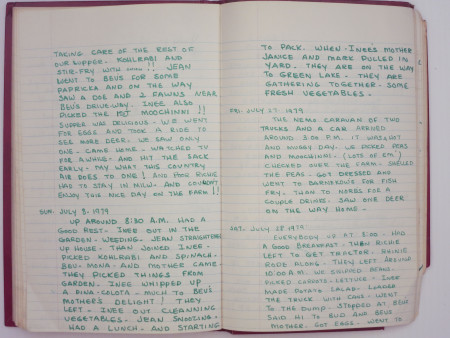 TAKING CARE OF THE REST OF
OUR SUPPER. KOHLRABI AND
STIR-FRY WITH !! JEAN
WENT TO BEUS FOR SOME
PAPRICKA AND ON THE WAY
SAW A DOE AND 2 FAWNS NEAR
BEUS DRIVE-WAY. INEE ALSO
PICKED THE MOOCHINNI !!
SUPPER WAS DELICIOUS. WE WENT
FOR EGGS AND TOOK A RIDE TO
SEE MORE DEER. WE SAW ONLY
ONE. CAME HOME. WATCHED TV
FOR AWHILE. AND HIT THE SACK
EARLY. MY WHAT THIS COUNTRY
AIR DOES TO ONE! AND POOR RICHIE
HAS TO STAY IN MILW. AND COULDN'T
ENJOY THIS NICE DAY ON THE FARM!!
SUN. JULY 8, 1979
UP AROUND 8:30 A.M. HAD A
GOOD REST. INEE OUT IN THE
GARDEN. WEEDING. JEAN STRAIGHTENED
UP HOUSE. THAN JOINED INEE.
PICKED KOHLRABI AND SPINACH.
BEU. MONA AND MOTHER CAME.
THEY PICKED THINGS FROM
GARDEN. INEE WHIPPED UP
A PINA-COLOTA - MUCH TO BEU'S
MOTHER'S DELIGHT! THEY
LEFT. INEE OUT CLEANNING
VEGETABLES. JEAN SNOOZING.
HAD A LUNCH. AND STARTING
TO PACK. WHEN INEES MOTHER
JANICE AND MARK PULLED IN
YARD. THEY ARE ON THE WAY
TO GREEN LAKE. THEY ARE
GATHERING TOGETHER. SOME
FRESH VEGETABLES.
FRI. JULY 27, 1979
THE NEMO CARAVAN OF TWO
TRUCKS AND A CAR ARRIVED
AROUND 3:00 P.M. IT WAS HOT
AND MUGGY DAY. WE PICKED PEAS
AND MOOCHINNI. (LOTS OF EM.)
CHECKED OVER THE FARM. SHELLED
THE PEAS. GOT DRESSED AND
WENT TO FOR FISH
FRY. THAN TO NORB'S FOR A
COUPLE DRINKS. SAW ONE DEER
ON THE WAY HOME.
SAT. JULY 28, 1979
EVERYBODY UP AT 8:00. HAD
A GOOD BREAKFAST. THAN RICHIE
LEFT TO GET TRACTOR.
RODE ALONG. THEY LEFT AROUND
10:00 A.M. WE SNIPPED BEANS.
PICKED CARROTS - LETTUCE. INEE
MADE POTATO SALAD. LOADED
THE TRUCK WITH CANS. WENT
TO THE DUMP. STOPPED AT BEUS
SAID HI TO BUD AND BEUS
MOTHER. GOT EGGS. WENT TO